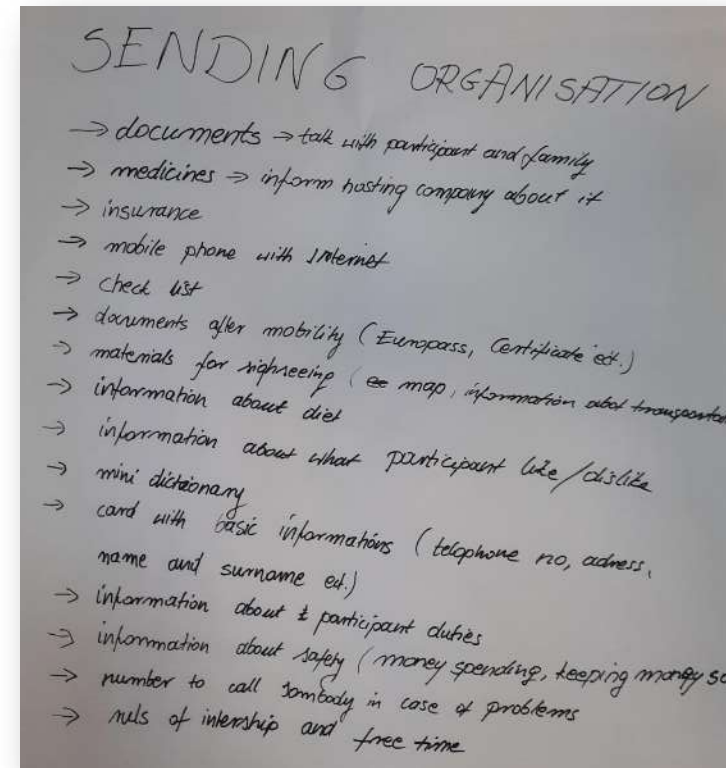 SENDING ORGANISATION
→ documents → talk with participant and family
→ medicines → inform hosting company about it
→ insurance
→ mobile phone with Internet
→ check list
→ documents after mobility (Europass, Certificate ect.)
→ materials for sighseeing ( map, information abot
→ information about diet
→ information about what participant like/dislike
→ mini dictionary
→ card with basic informations (telophone no, adress,
name and surname ect.)
→ information about participant duties
→ information about safety (money spending, keeping money
→ number to call sombody in case of problems
→ ruls of intership and free time